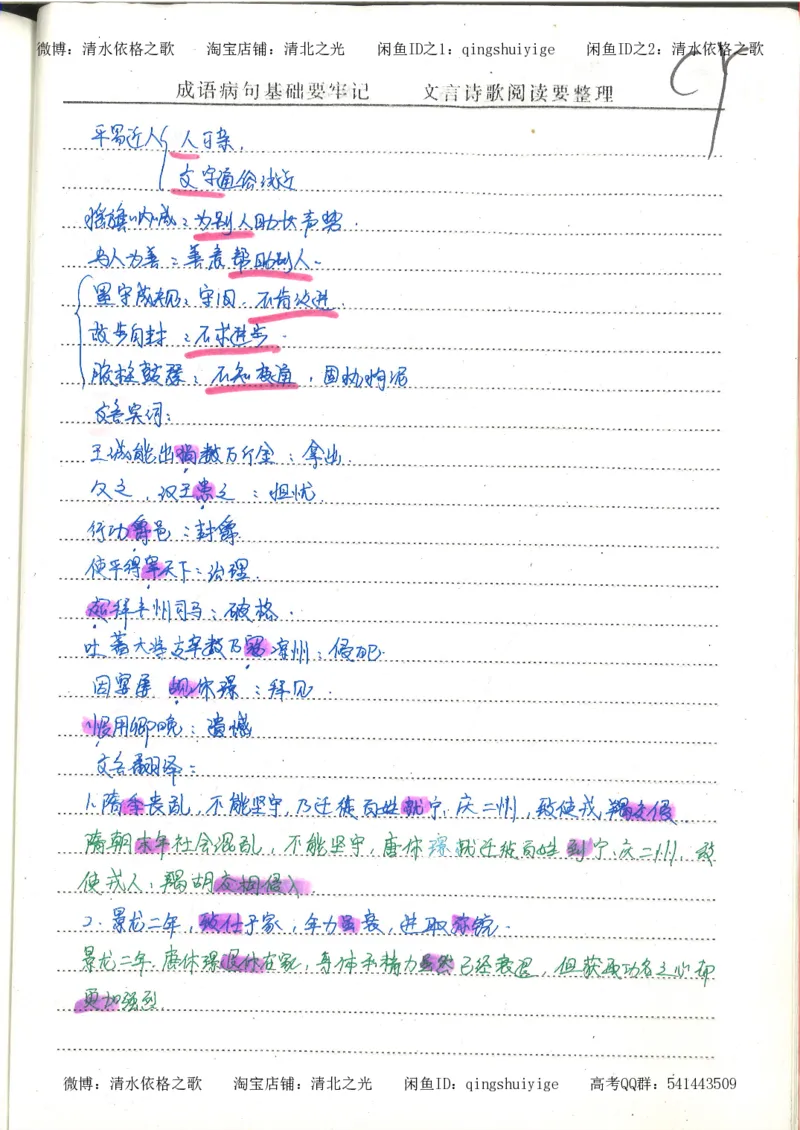 微博：清水依格之歌 淘宝店铺：清北之光 闲鱼ID之1：qingshuiyige 闲鱼ID之2：清水依格之歌
成语病句基础要牢记 文言诗歌阅读要整理
平易近人 人可亲，
文字通俗浅近
摇旗呐喊：为别人助长声势．
与人为善：善意帮助别人．
墨守成规：守旧，不肯改进．
故步自封：不求进步．
胶柱鼓瑟：不知变通，固执拘泥
文言实词：
王诚能出捐数万斤金：拿出．
久之，汉王患之：担忧．
行功爵邑：封爵．
使平得宰天下：治理．
超拜丰州司马：破格．
吐蕃大将 率数万 凉州：侵犯．
因宴屡 休璟：拜见．
恨用卿晚：遗憾
文言翻译：
1．隋季丧乱，不能坚守，乃迁徙百姓就宁、庆二州，致使戎羯交侵
隋朝末年社会混乱，不能坚守，唐休璟就迁徙百姓到宁、庆二州，致
使戎人、羯胡交相侵入．
2．景龙二年，致仕于家，年力虽衰，进取弥锐．
景龙二年，唐休璟退休在家，身体和精力虽然已经衰退，但获取功名之心却
更加强烈．
微博：清水依格之歌 淘宝店铺：清北之光 闲鱼ID：qingshuiyige 高考QQ群：541443509